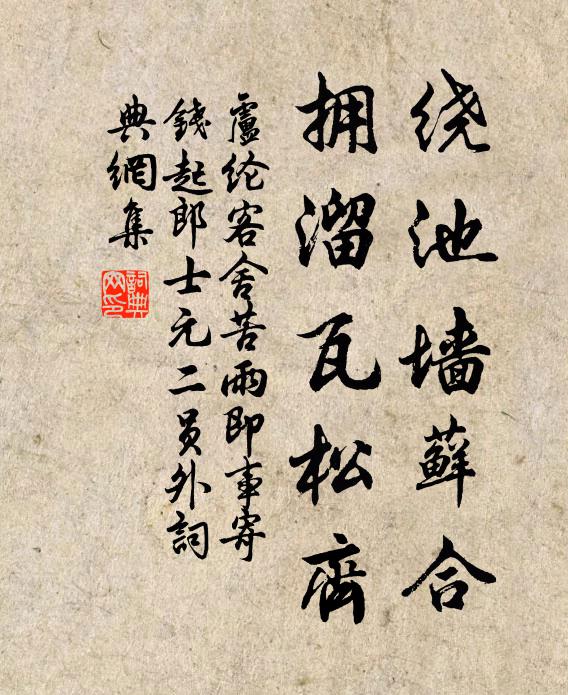 绕池墙藓合
拥溜瓦松齊
盧纶客舍苦雨即事寄
錢起郎士元二员外詞
典網集
詞典
网印